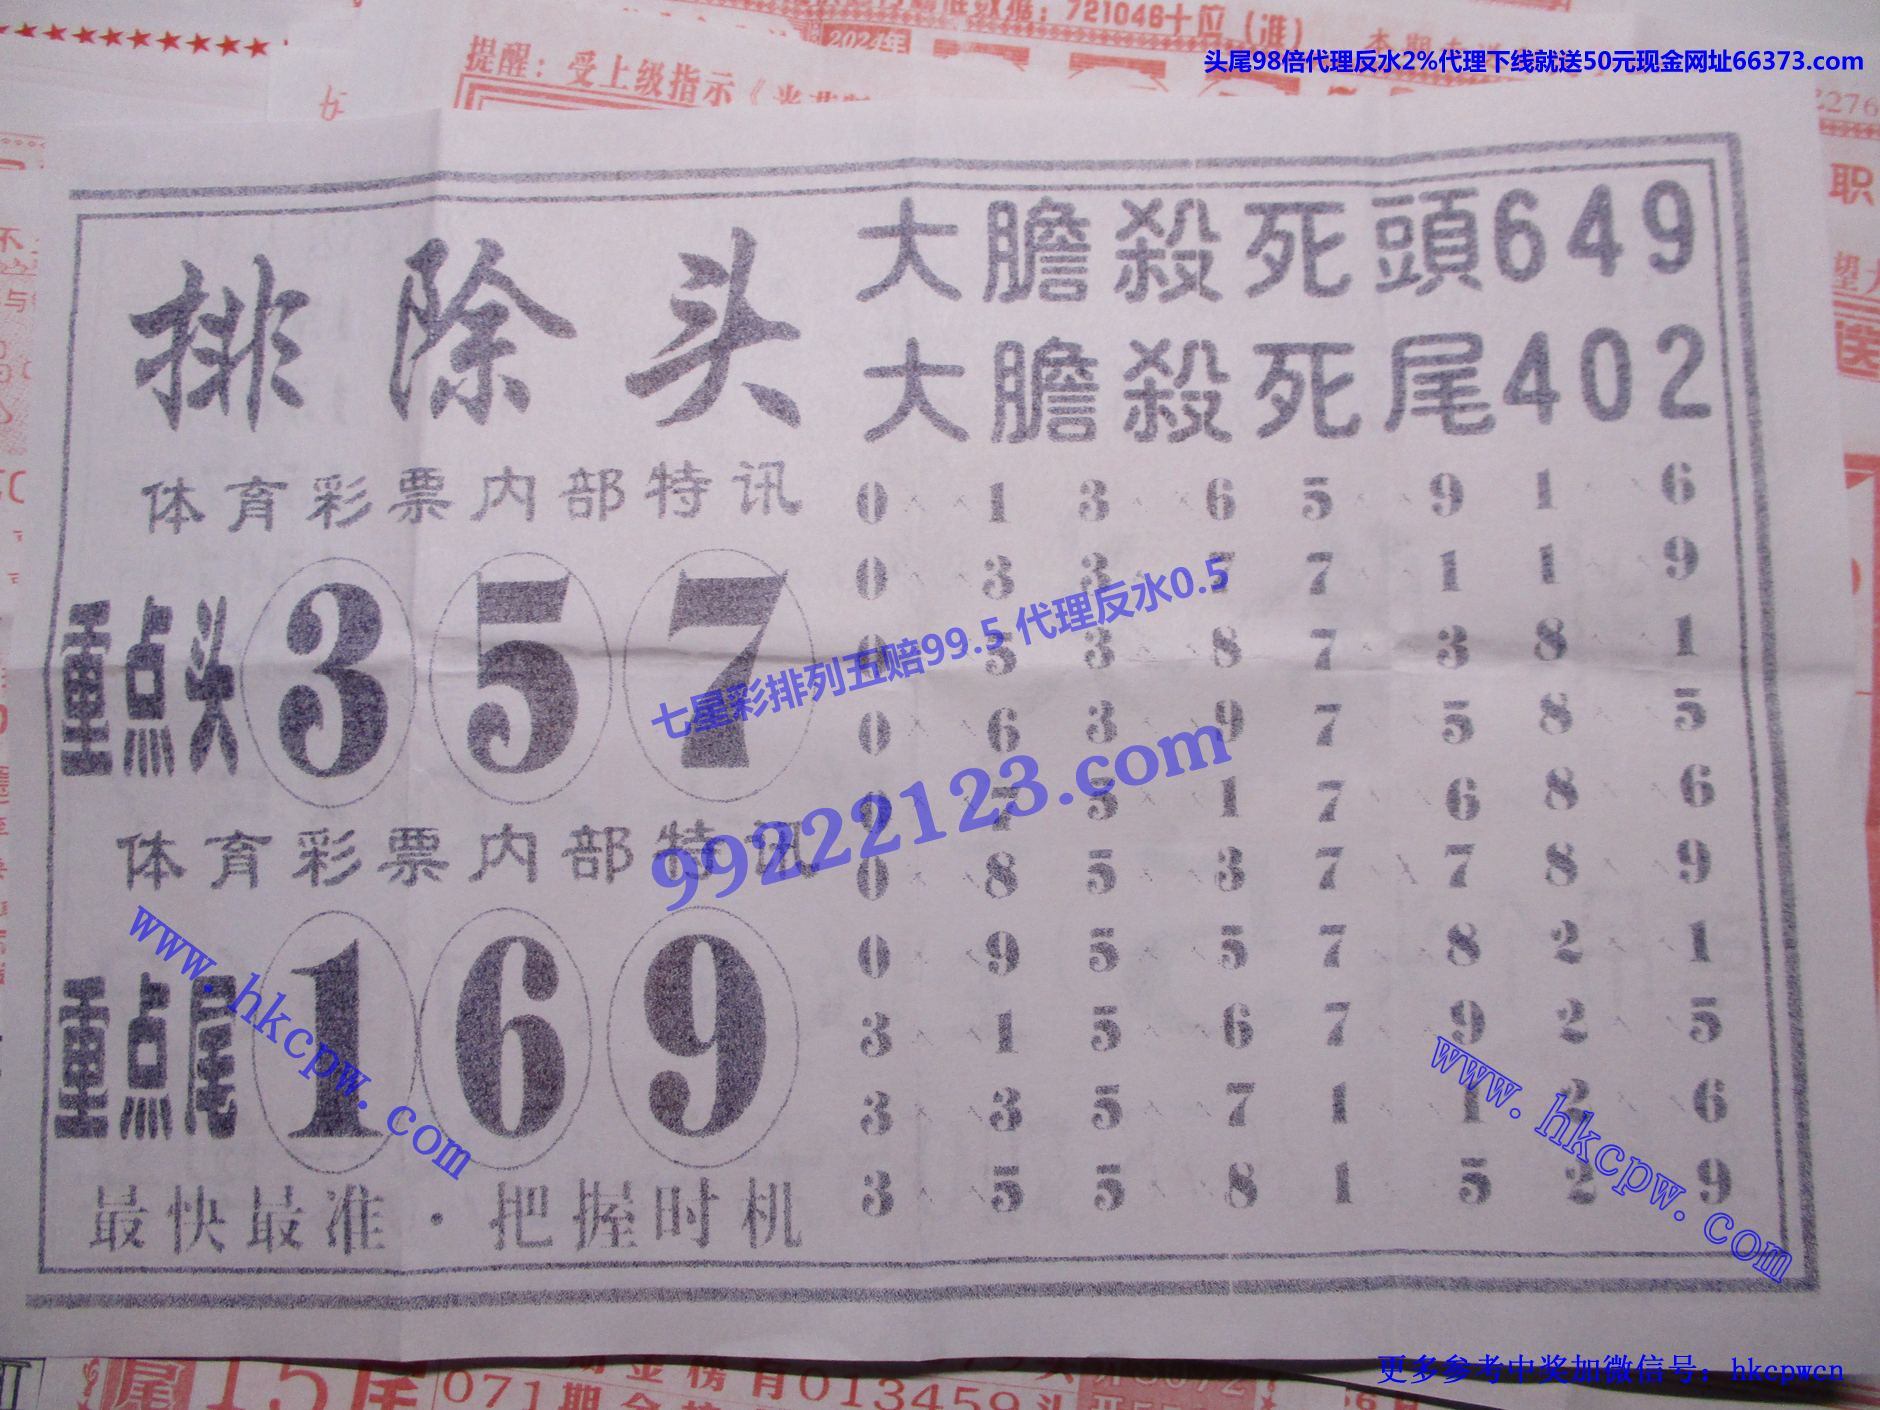 据：721046十位（准）
2024年
提醒：受上级指示《
头尾98倍代理反水2%代理下线就送50元现金网址66373.com
职
排除头
大膽殺死頭649
大膽殺死尾402
体育彩票内部特讯
重点头 3 5 7
体育彩票内部特讯
重点尾 1 6 9
最快最准·把握时机
0××1 3××6 5××9 1××6
0××3 3××7 7××1 1××9
0××5 3××8 7××3 8××1
0××6 3××9 7××5 8××5
0××7 5××1 7××6 8××6
0××8 5××3 7××7 8××9
0××9 5××5 7××8 2××1
3××1 5××6 7××9 2××5
3××3 5××7 1××1 2××6
3××5 5××8 1××5 2××9
七星彩排列五赔99.5 代理反水0.5
99222123.com
www.hkcpw.com
www.hkcpw.com
尾15尾
071期金榜有013459头
更多参考中奖加微信号：hkcpwcn